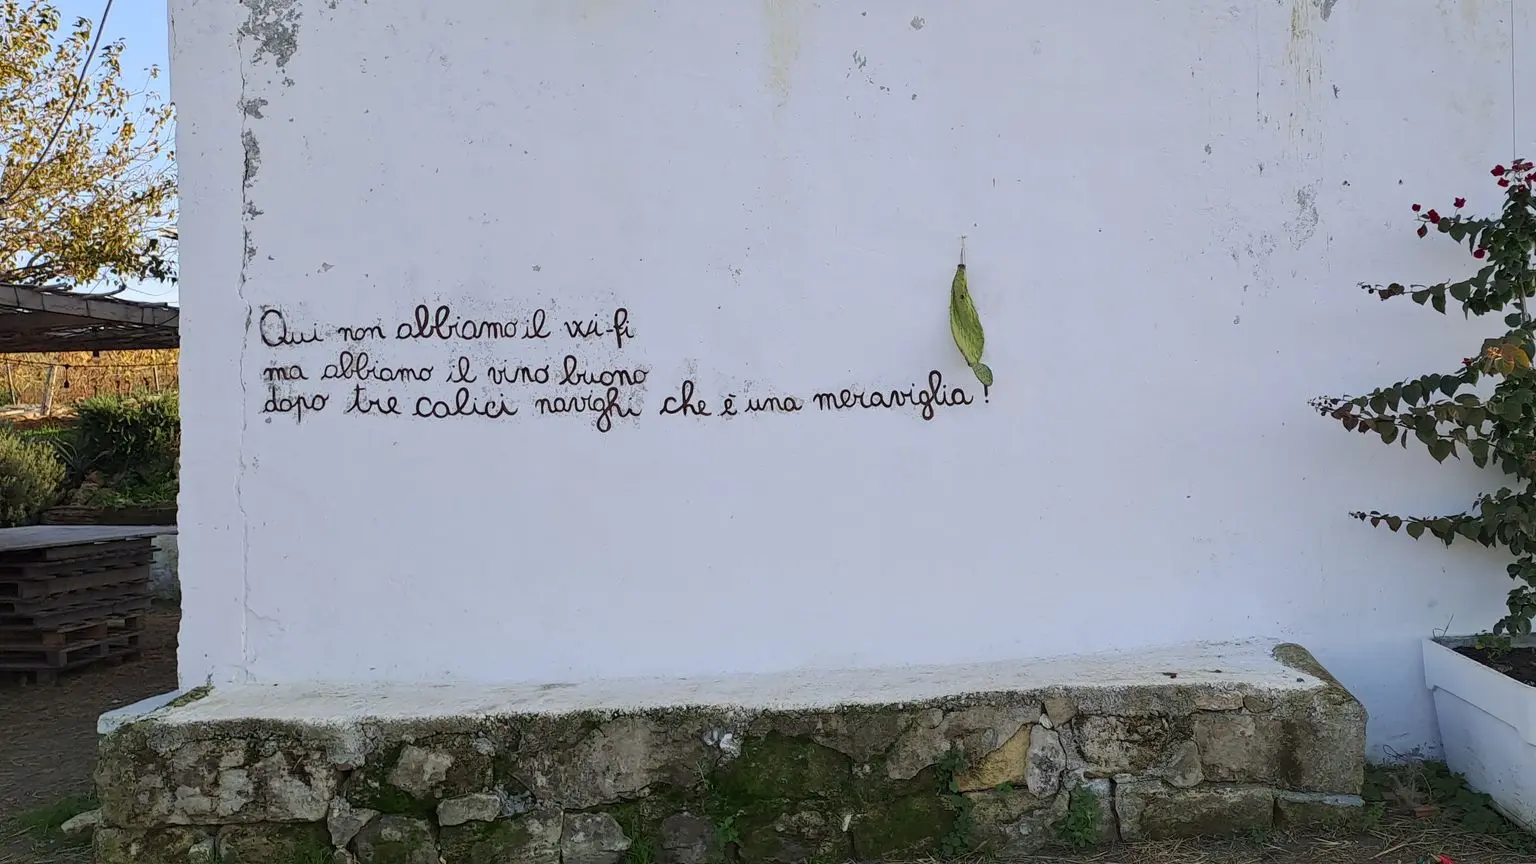 Qui non abbiamo il wi-fi
ma abbiamo il vino buono
dopo tre calici navighi che è una meraviglia!